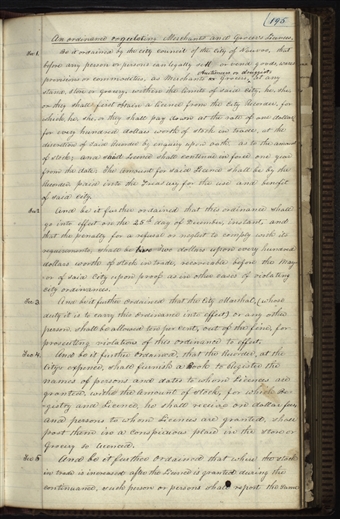 195
An ordinance regulating Merchants and Grocer's License.
Sec 1. Be it ordained by the city council of the city of Nauvoo, that
before any person or persons can legally sell or vend goods, wares
provisions or commodities, as Merchants or Grocers, at any
Auctioneer or druggist
stand, store or grocery, within the limits of said city, he, she,
or they shall first obtain a licence from the City Recorder, for
which, he, she, or they shall pay down at the rate of one dollar
for every hundred dollars worth of stock in trade, at the
discretion of said Recorder by enquiry upon oath, as to the amount
of stock; and said licence shall continue in force one year
from the date. The amount for said licence shall be by the
Recorder paid into the Treasury for the use and benefit
of said city.
Sec 2. And be it further ordained that this ordinance shall
go into effect on the 25th day of December, instant, and
that the penalty for a refusal or neglect to comply with its
requirements, shall be two dollars upon every hundred
dollars worth of stock in trade, recoverable before the May
or of said City upon proof as in other cases of violating
city ordinances.
Sec 3. And be it further ordained that the City Marshal, (whose
duty it is to carry this ordinance into effect) or any other
person, shall be allowed ten per cent, out of the fine, for
prosecuting violations of this ordinance to effect.
Sec 4. And be it further ordained, that the Recorder, at the
city's expense, shall furnish a Book to register the
names of persons and dates to whom Licences are
granted, with the amount of stock, for which re
gistry and Licence, he shall receive one dollar from
and persons to whom Licences are granted, shall
post them in a conspicuous place in the store or
Grocery so licenced.
Sec 5 And be it further Ordained that when the stock
in trade is increased after the Licence is granted during the
continuance, such person or persons shall report the same